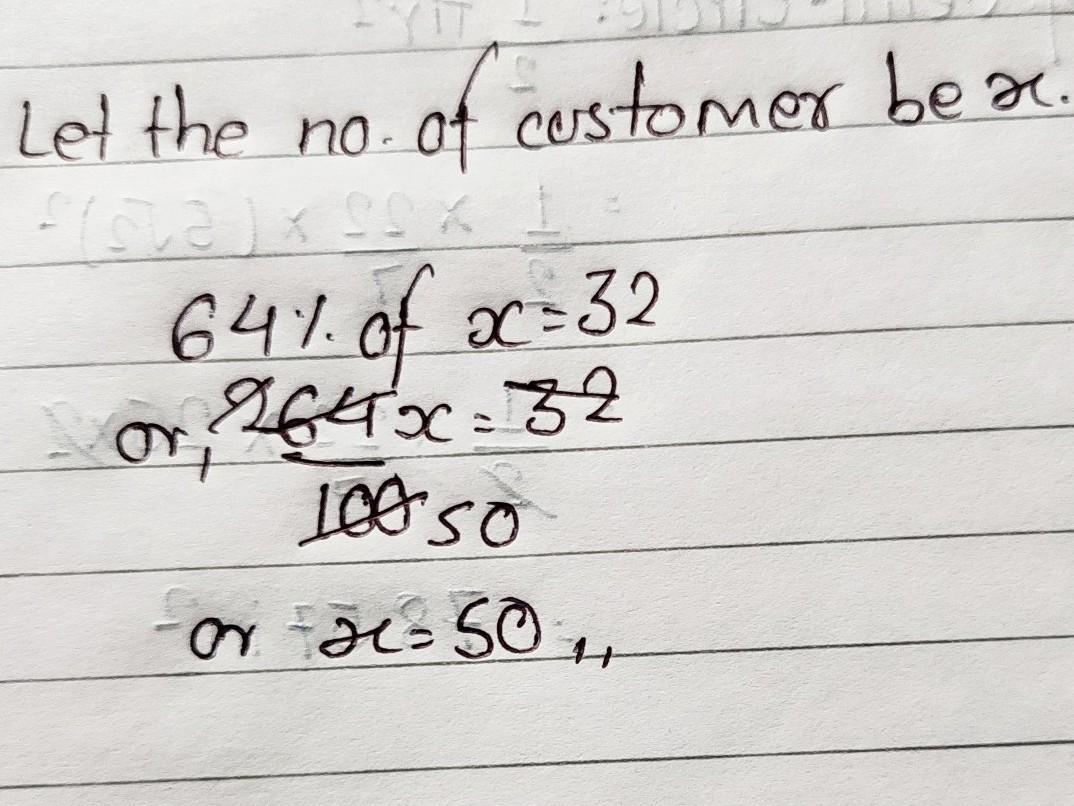 Let the no. of customer be x.
64% of x = 32
or, 2 64 x = 32
100 50
or x = 50 ,,